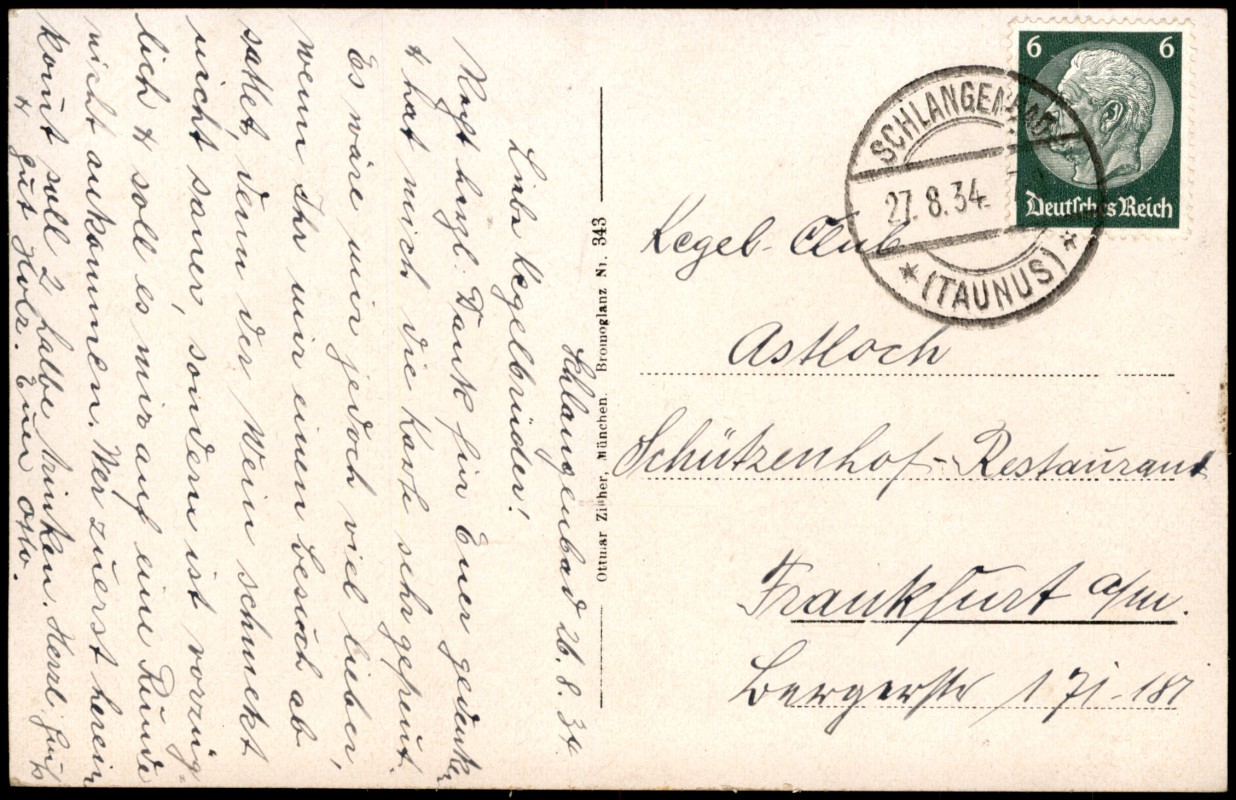 Schlangenbad 26.8.34.
Liebe Kegelbrüder!
Negst herzl. Dank für Euer gedenken
+ hat mich die Karte sehr gefreut.
Es wäre mir jedoch viel lieber,
wenn Ihr mir einen besuch ab
sattet, denn der Wein schmeckt
nicht sauer, sondern ist vorzüg-
lich + soll es mir auf eine Runde
nicht ankommen. Wer zuerst herein
komt soll 2 halbe trinken. Herzl. Gruß
+ gut Holz. Euer Otto.
Ottmar Zieher, München. Bromoglanz Nr. 343
6 6
Deutsches Reich
SCHLANGENBAD
27.8.34.
(TAUNUS)
Kegel-Club
Astloch
Schützenhof-Restaurant
Frankfurt a/m.
Bergerstr 171-187